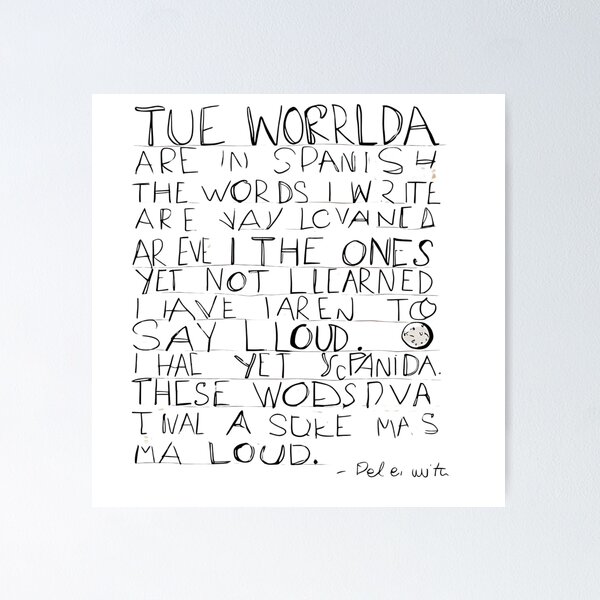 TUE WORRLDA
ARE IN SPANISH
THE WORDS I WRITE
ARE VAY LOVANED
AR EVE I THE ONES
YET NOT LLEARNED
I HAVE IAREN TO
SAY LLOUD.
I HAL YET ScPANIDA.
THESE WODS DVA
TINAL A SOKE MAS
MA LOUD.
- Pel e. with